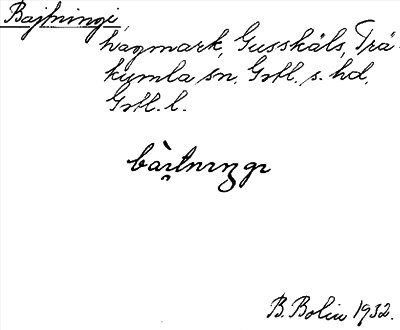 Bajtningi,
hagmark, Gusskäls, Trä-
kumla sn, Gotl. s. hd,
Gotl. l.
bàɪ̯tnɪŋgɪ
B. Bolin 1932.